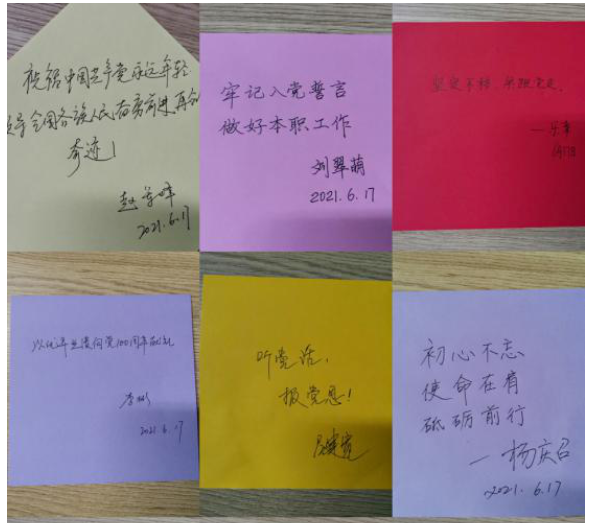 祝福中国共产党永远年轻
领导全国各族人民奋勇前进再创
奇迹！
2021.6.17
牢记入党誓言
做好本职工作
刘翠萌
2021.6.17
坚定不移，永跟党走。
以优异业绩向党100周年献礼
李彬
2021.6.17
听党话，
报党恩！
初心不忘
使命在肩
砥砺前行
—杨庆召
2021.6.17